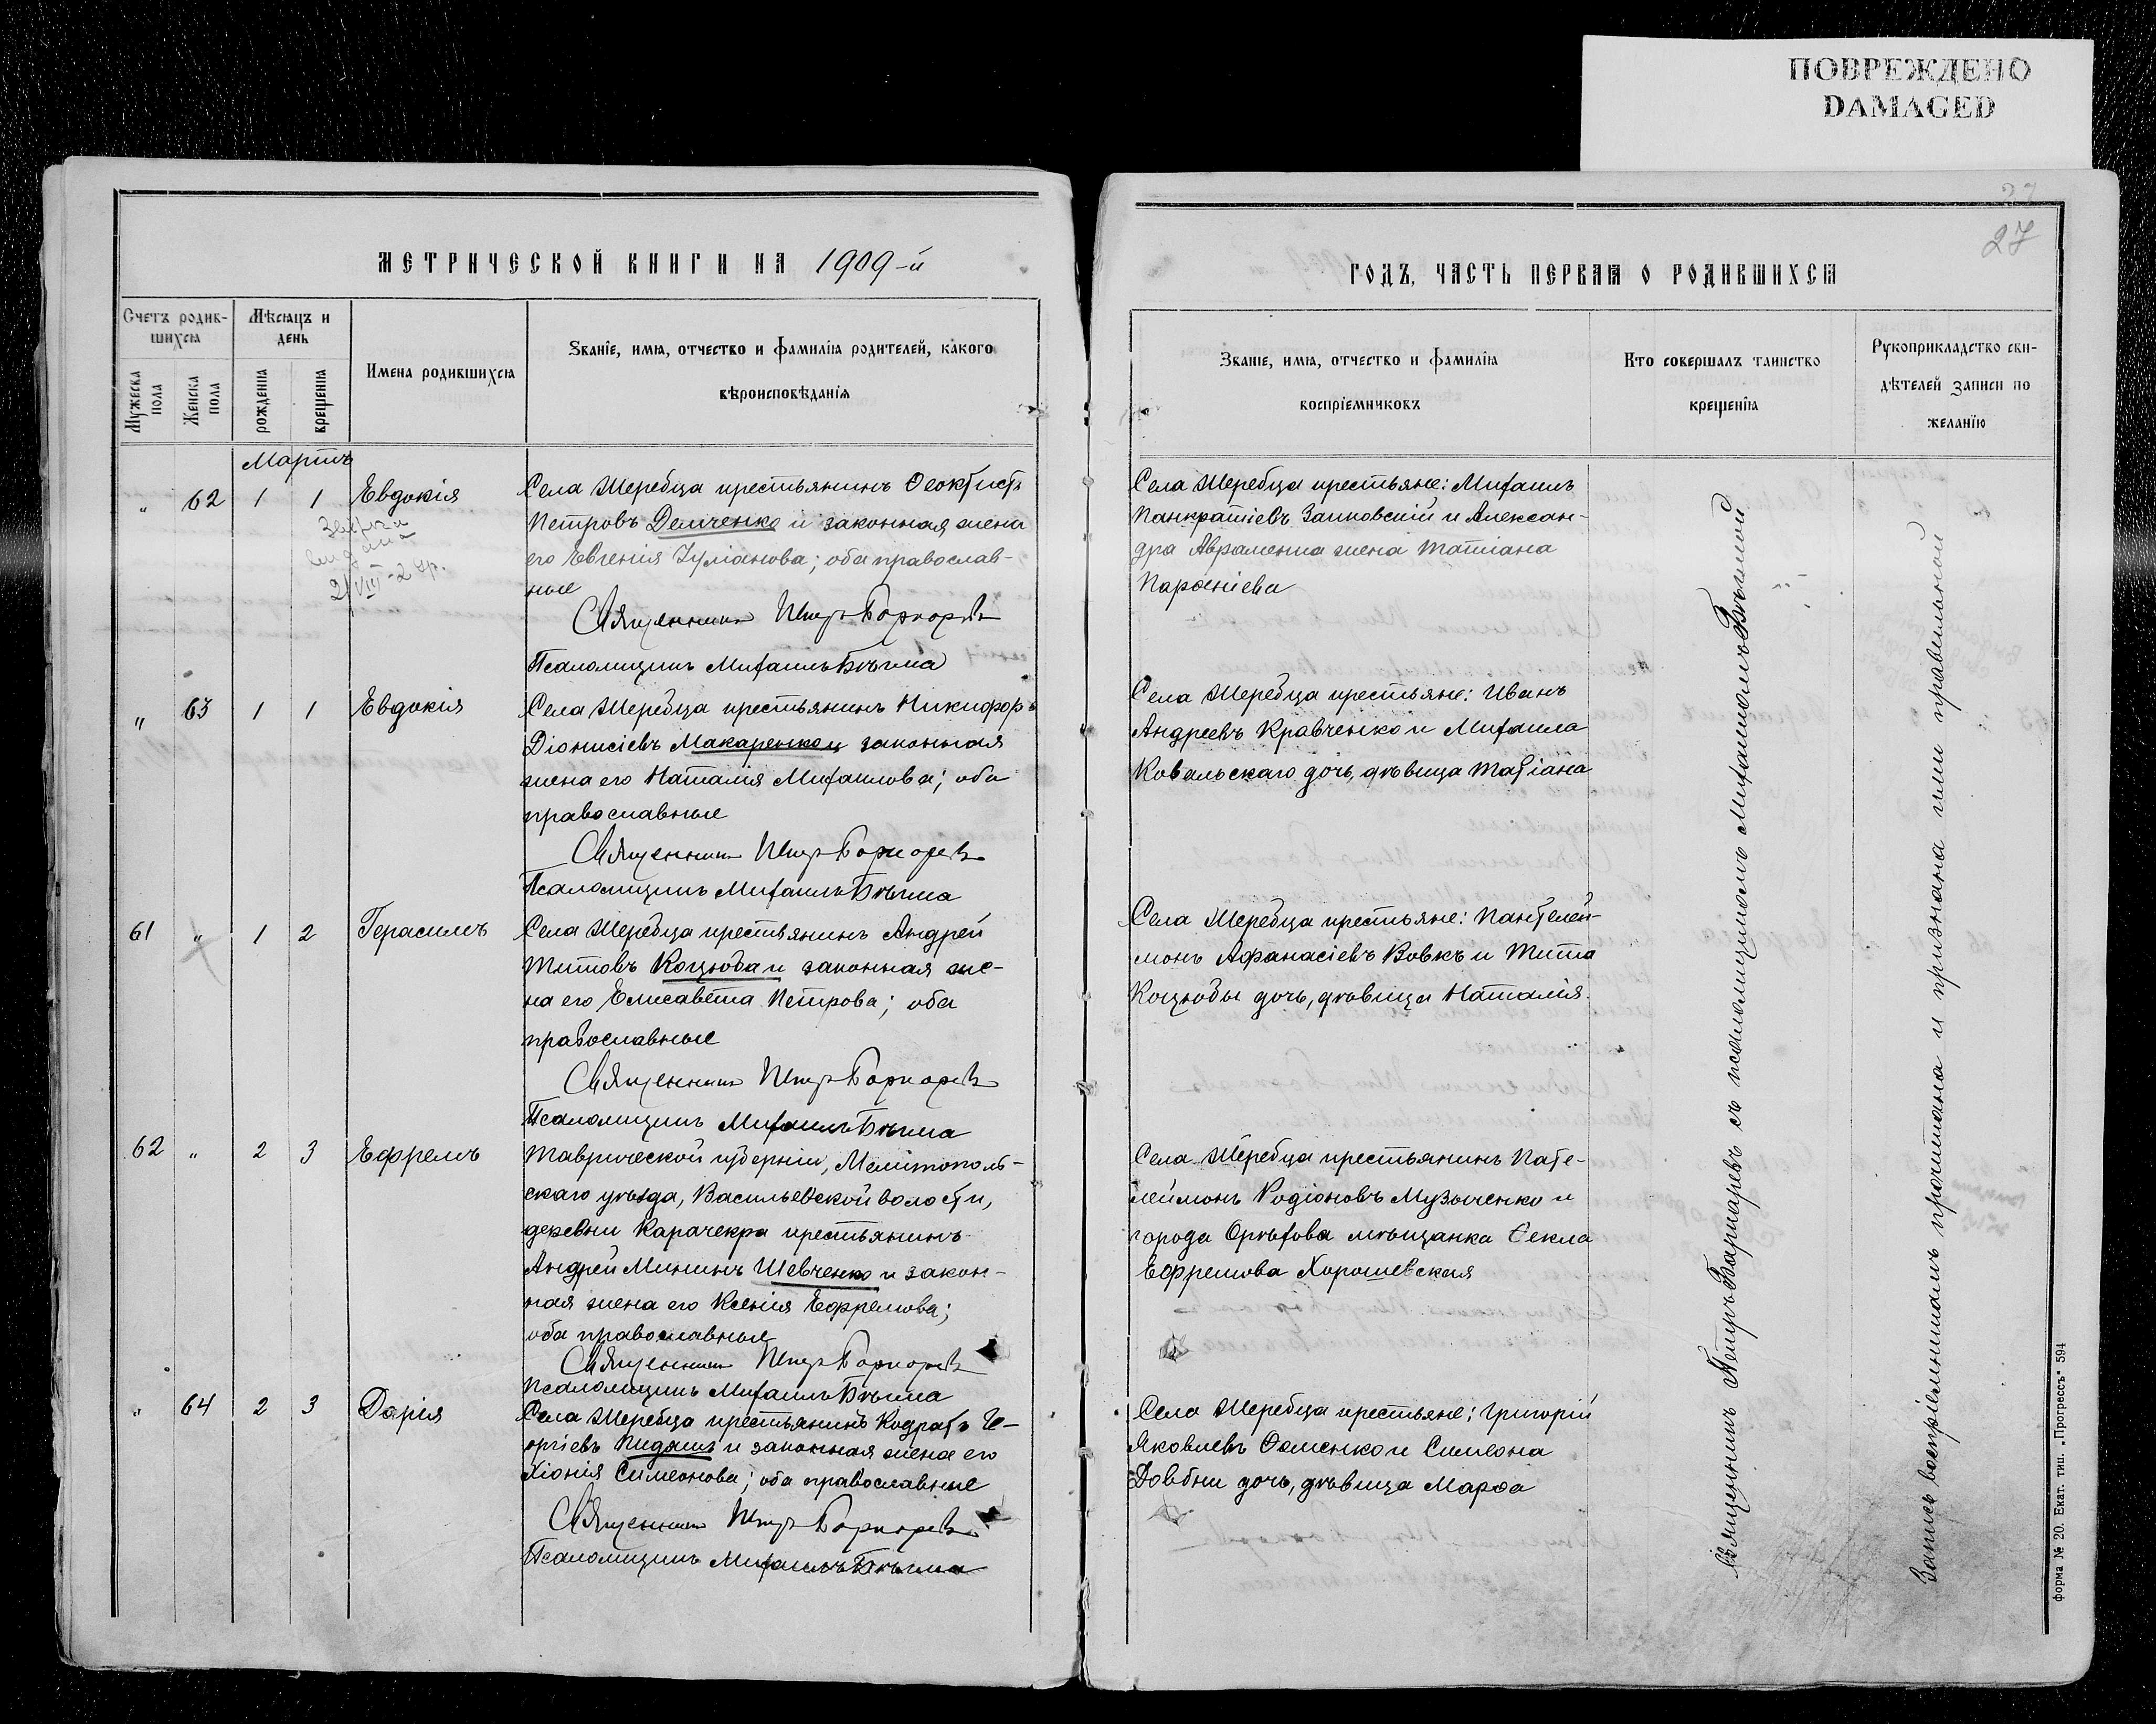 ПОВРЕЖДЕНО
DAMAGED
МЕТРИЧЕСКОЙ КНИГИ НА 1909-й
Счетъ родив-
шихся
Мѣсяцъ и
день
Мужеска
пола
Женска
пола
рожденія
крещенія
Имена родившихся
Званіе, имя, отчество и фамилія родителей, какого
вѣроисповѣданія
Мартъ
„ 62 1 1 Евдокія
Села Жеребца крестьянинъ Ѳеоктистъ
Петровъ Демченко и законная жена
его Евгенія Іуліанова; оба православ-
ные
Священникъ Петръ
Псаломщикъ Михаилъ Бѣлма
„ 63 1 1 Евдокія
Села Жеребца крестьянинъ Никифоръ
Діонисіевъ Макаренко и законная
жена его Наталія Михаилова; оба
православные
Священникъ Петръ
Псаломщикъ Михаилъ
61 „ 1 2 Герасимъ
Села Жеребца крестьянинъ Андрей
Титовъ Коцюба и законная же-
на его Елисавета Петрова; оба
православные
Священникъ Петръ
Псаломщикъ Михаилъ
62 „ 2 3 Ефремъ
Таврической губерніи, Мелитополь-
скаго уѣзда, Васильевской волости,
деревни Карачекра крестьянинъ
Андрей Мининъ Шевченко и закон-
ная жена его Ксенія Ефремова;
оба православные
Священникъ Петръ
Псаломщикъ Михаилъ
„ 64 2 3 Дарія
Села Жеребца крестьянинъ Кодратъ Ге-
оргіевъ и законная жена его
Хіонія Симеонова; оба православные
Священникъ Петръ
Псаломщикъ Михаилъ
27
ГОДЪ, ЧАСТЬ ПЕРВАЯ О РОДИВШИХСЯ
Званіе, имя, отчество и фамилія
воспріемниковъ
Кто совершалъ таинство
крещенія
Рукоприкладство сви-
дѣтелей записи по
желанію
Села Жеребца крестьяне: Михаилъ
Панкратіевъ Заиковскій и Алексан-
дра Авраменка жена Татіана
Парѳеніева
Села Жеребца крестьяне: Иванъ
Андреевъ Кравченко и Михаила
Ковальскаго дочь, дѣвица Татіана
Села Жеребца крестьяне: Пантелей-
монъ Афанасіевъ Вовкъ и Тита
Коцюбы дочь, дѣвица Наталія.
Села Жеребца крестьянинъ Пате-
леймонъ Родіоновъ Музыченко и
города Орѣхова мѣщанка Ѳекла
Ефремова Хорошевская
Села Жеребца крестьяне: Григорій
Яковлевъ и Симеона
Довбни дочь, дѣвица Марѳа
Священникъ Петръ съ псаломщикомъ Михаиломъ
Запись воспріемникамъ прочитана и признана ими правильной
Форма № 20. Екат. тип. „Прогрессъ" 594